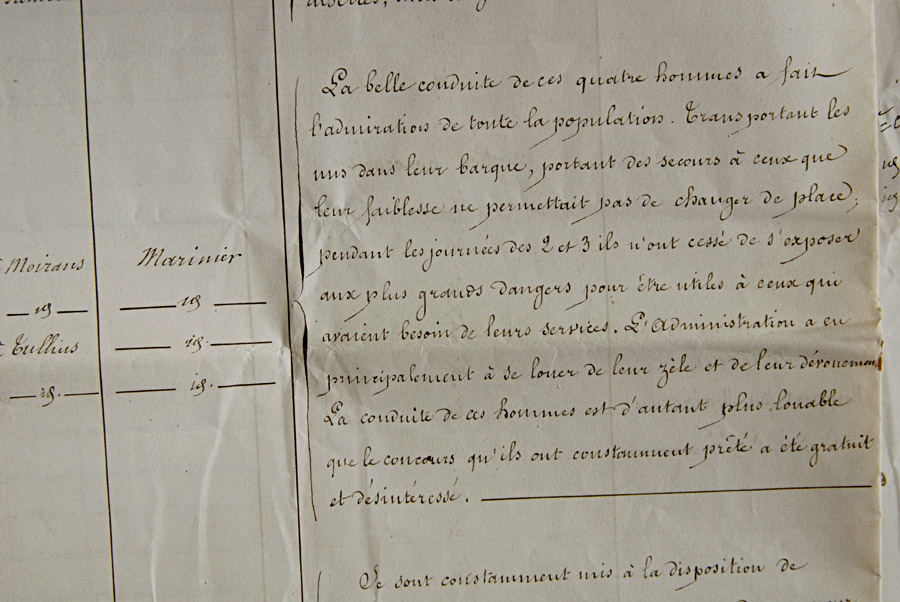 La belle conduite de ces quatre hommes a fait
l'admiration de toute la population. Transportant les
uns dans leur barque, portant des secours à ceux que
leur faiblesse ne permettait pas de changer de place,
pendant les journées des 2 et 3 ils n'ont cessé de s'exposer
aux plus grands dangers pour être utiles à ceux qui
avaient besoin de leurs services. L'Administration a eu
principalement à se louer de leur zèle et de leur dévouement
La conduite de ces hommes est d'autant plus louable
que le concours qu'ils ont constamment prêté a été gratuit
et désintéressé.
Moirans Marinier
id id
Tullins id.
id. id.
Se sont constamment mis à la disposition de